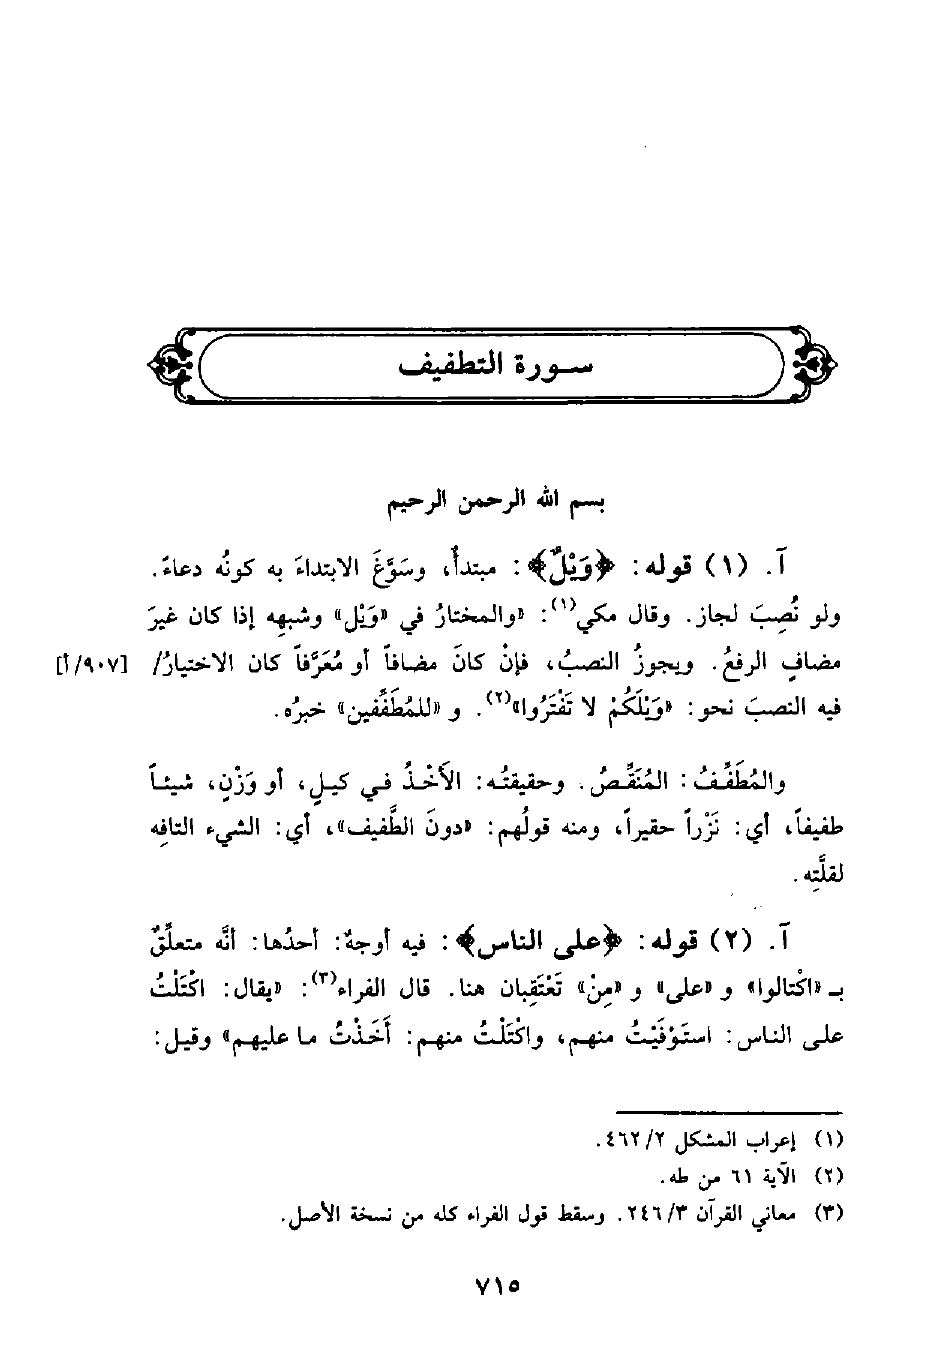 سورة التطفيف
بسم الله الرحمن الرحيم
آ. (١) قوله: ﴿وَيْلٌ﴾: مبتدأٌ، وسَوَّغَ الابتداءَ به كونُه دعاءً.
ولو نُصِبَ لجاز. وقال مكي(١): «والمختارُ في «وَيْل» وشبهِه إذا كان غيرَ
مضافٍ الرفعُ. ويجوزُ النصبُ، فإنْ كانَ مضافاً أو مُعَرَّفاً كان الاختيارُ/ [٩٠٧/أ]
فيه النصبَ نحو: «وَيْلَكُمْ لا تَفْتَرُوا»(٢). و «للمُطَفِّفين» خبرُه.
والمُطَفِّفُ: المُنَقِّصُ. وحقيقتُه: الأَخْذُ في كيلٍ، أو وَزْنٍ، شيئاً
طفيفاً، أي: نَزْراً حقيراً، ومنه قولُهم: «دونَ الطَّفيف»، أي: الشيء التافِه
لقلَّتِه.
آ. (٢) قوله: ﴿على الناس﴾: فيه أوجهٌ: أحدُها: أنَّه متعلِّقٌ
بـ «اكْتالوا» و «على» و «مِنْ» تَعْتَقِبان هنا. قال الفراء(٣): «يقال: اكْتَلْتُ
على الناس: استَوْفَيْتُ منهم، واكْتَلْتُ منهم: أَخَذْتُ ما عليهم» وقيل:
(١) إعراب المشكل ٤٦٢/٢.
(٢) الآية ٦١ من طه.
(٣) معاني القرآن ٢٤٦/٣. وسقط قول الفراء كله من نسخة الأصل.
٧١٥